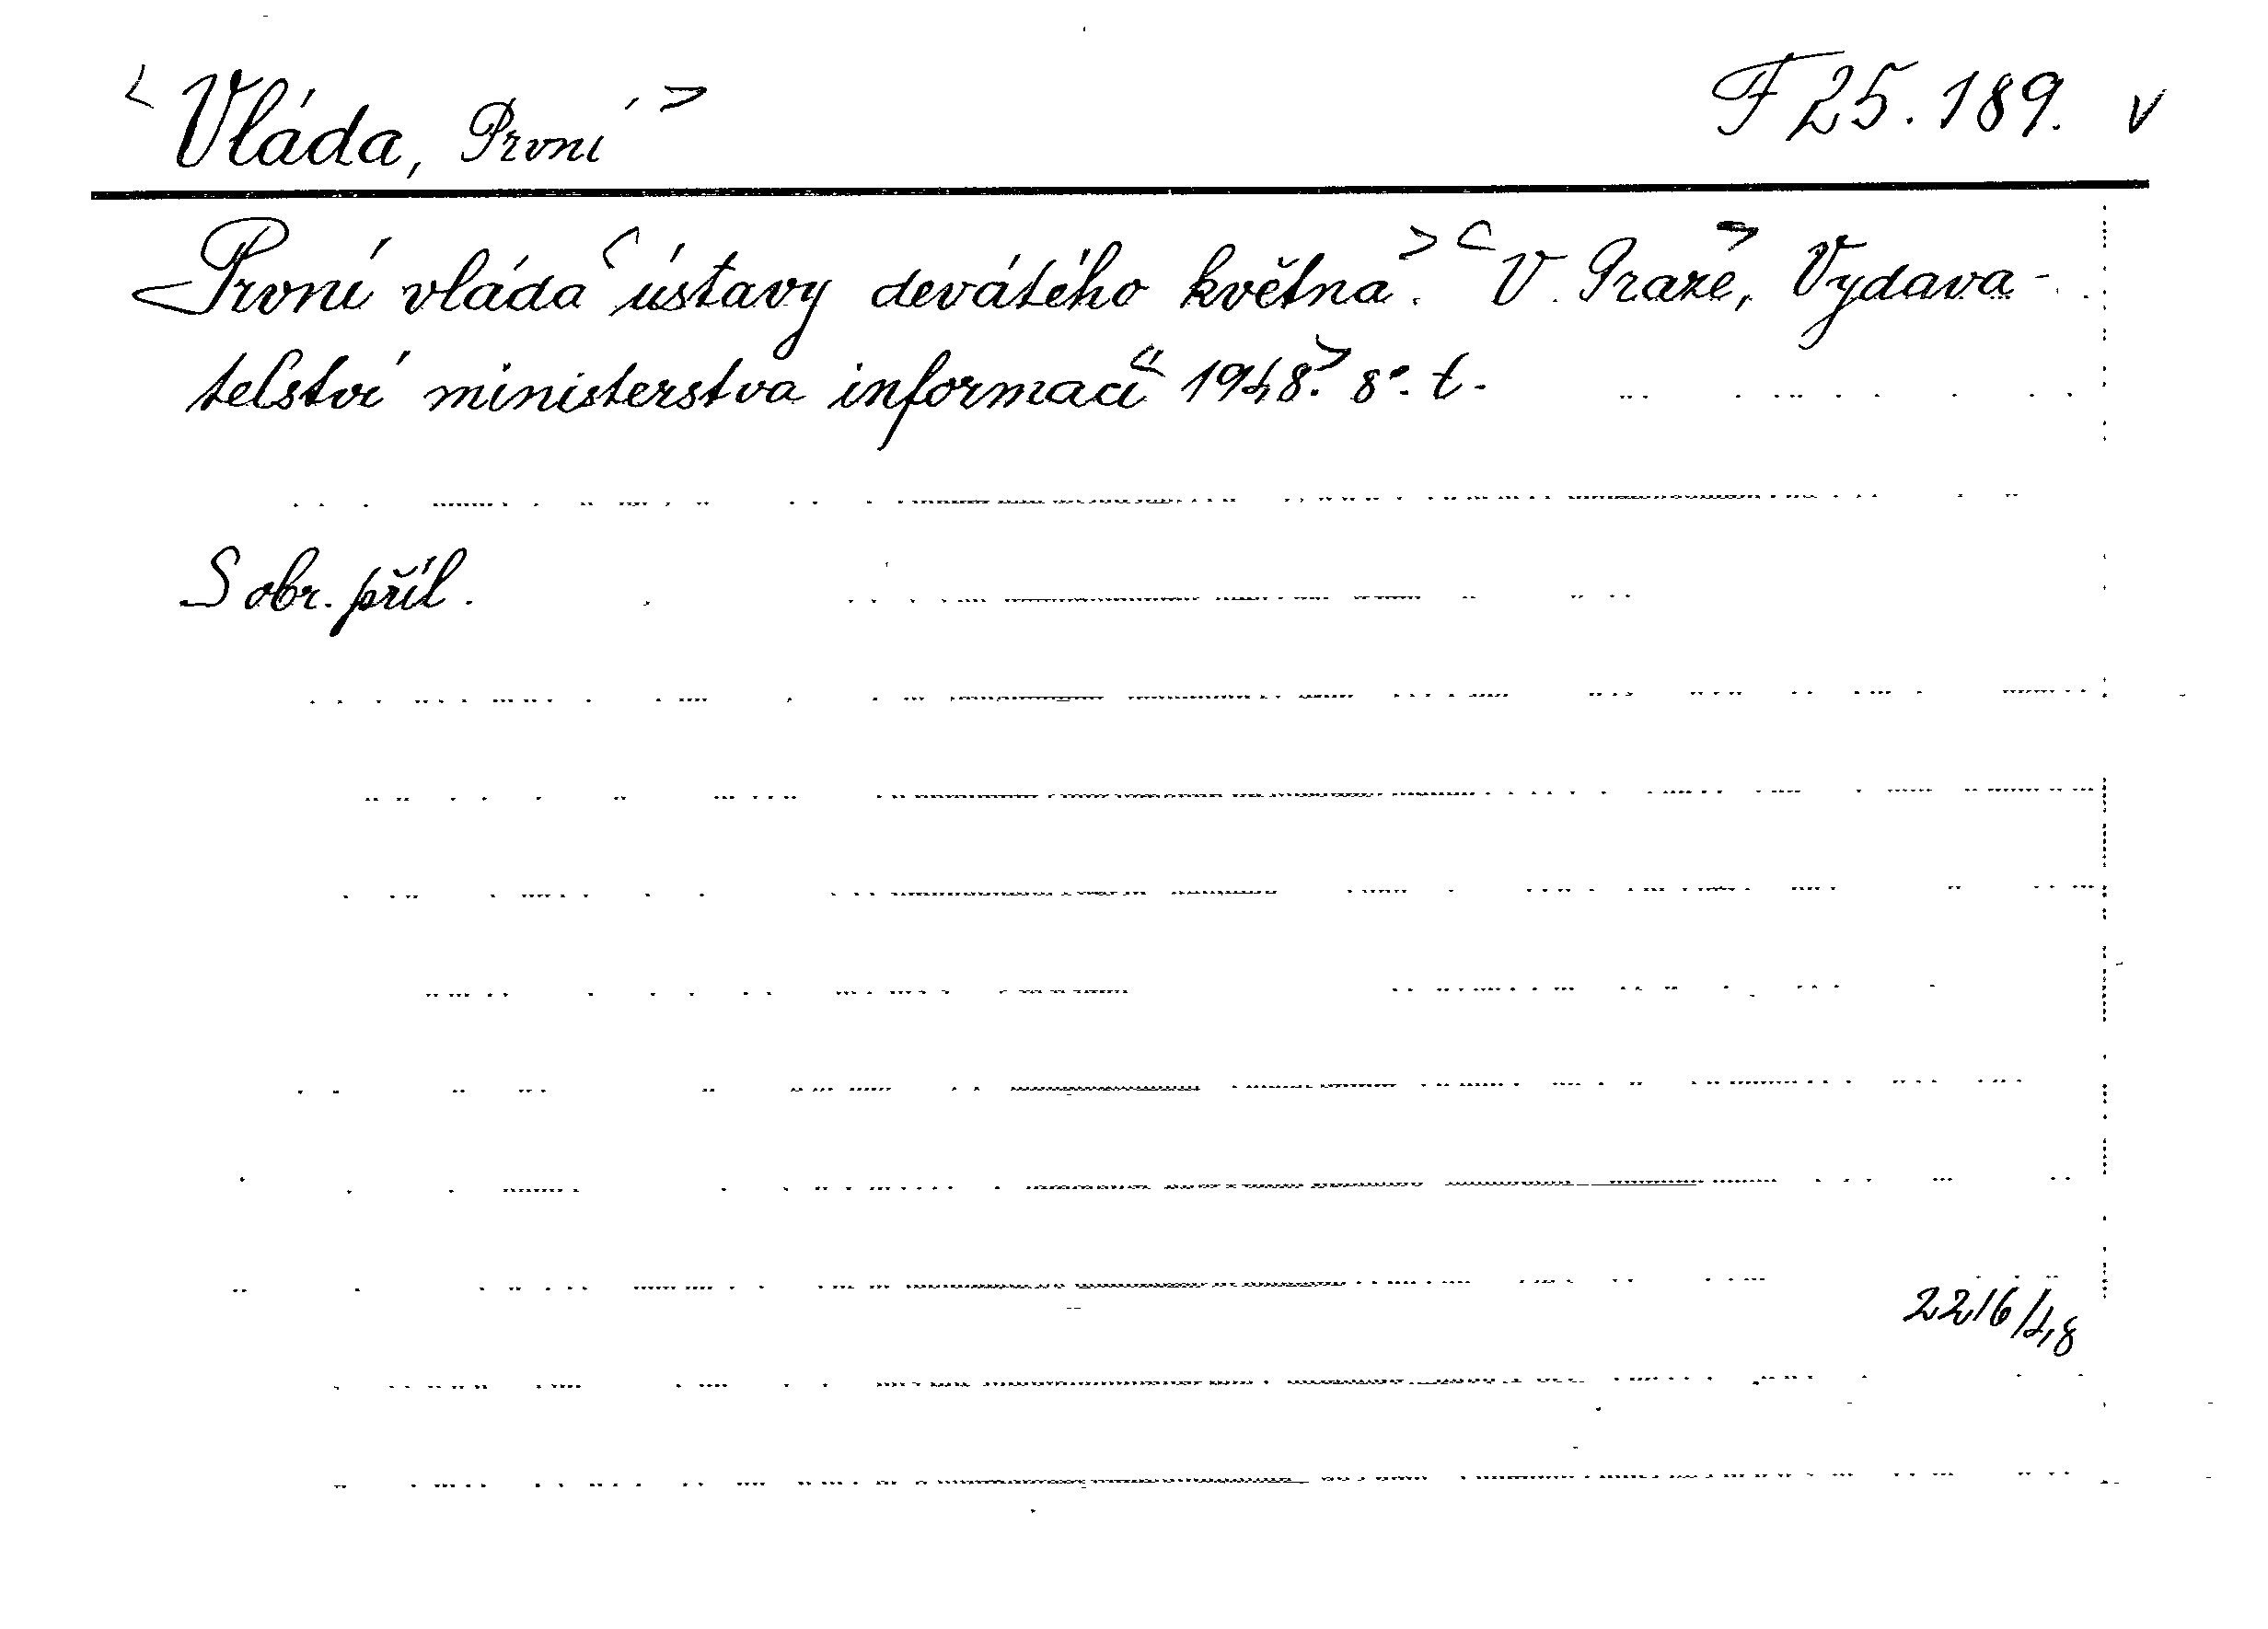 <Vláda, První> F 25.189. v
<První vláda <ústavy devátého května.> <V Praze,> Vydava-
telství ministerstva informací <1948.> 8°. t.
S obr. příl.
2216/48